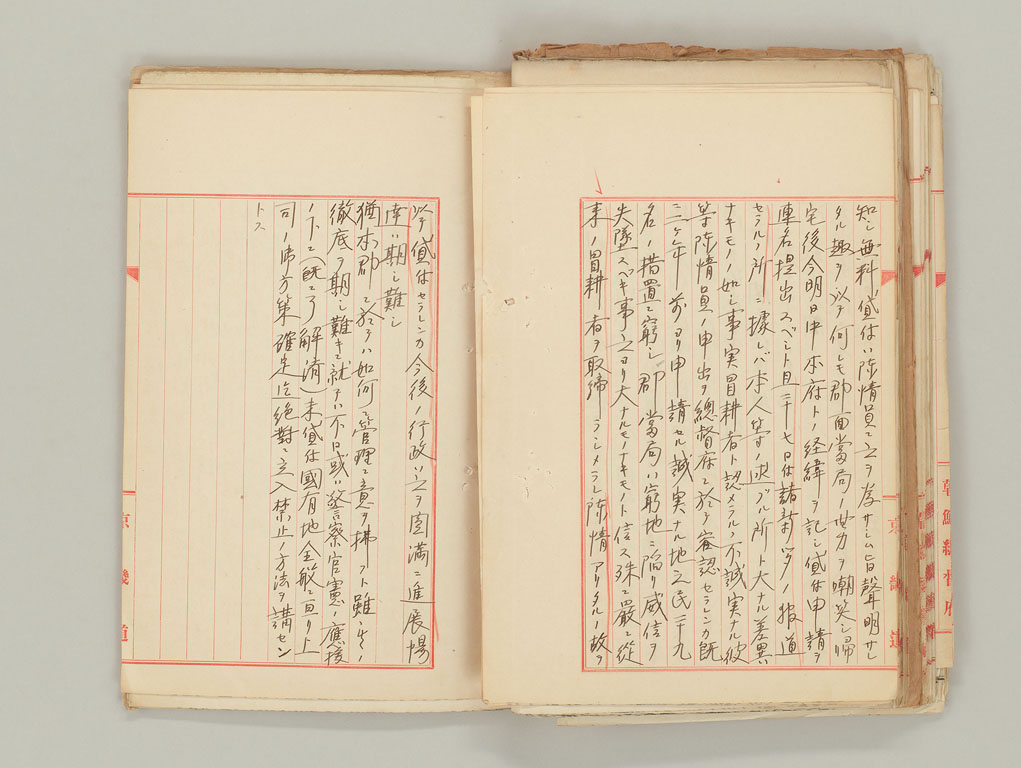 知シ無料貸付ハ陳情員ニ之ヲ為サシム旨聲明サレ
タル趣ヲ以テ何レモ郡面當局ノ無力ヲ嘲笑シ帰
宅後今明日中本府トノ経緯ヲ記シ貸付申請ヲ
連名提出スベシト且二十七日付諸新聞ノ報道
セラルヽ所ニ據レバ本人等ノ述ブル所ト大ナル差異
ナキモノヽ如シ事実冒耕者ト認メラルヽ不誠実ナル彼
等陳情員ノ申出ヲ總督府ニ於テ容認セラレンカ既
ニ二ヶ年前ヨリ申請セル誠実ナル地元民三十九
名ノ措置ニ窮シ郡當局ハ窮地ニ陥リ威信ヲ
失墜スベキ事之ヨリ大ナルモノナキモノト信ス殊ニ嚴ニ從
来ノ冒耕者ヲ取締ランメラレ陳情アリタルノ故ヲ
以テ貸付セラレンカ今後ノ行政ハ之ヲ圓満ニ進展暢
達ハ期シ難シ
猶本郡ニ於テハ如何ニ管理ニ意ヲ拂フト雖モ之ノ
徹底ヲ期シ難キニ就テハ不日或ハ警察官憲ノ應援
ノ下ニ(既ニ了解済)未貸付國有地全般ニ亘リ上
司ノ御方策確定迄絶對ニ立入禁止ノ方法ヲ講セン
トス
京畿道
京畿道
朝鮮總督府